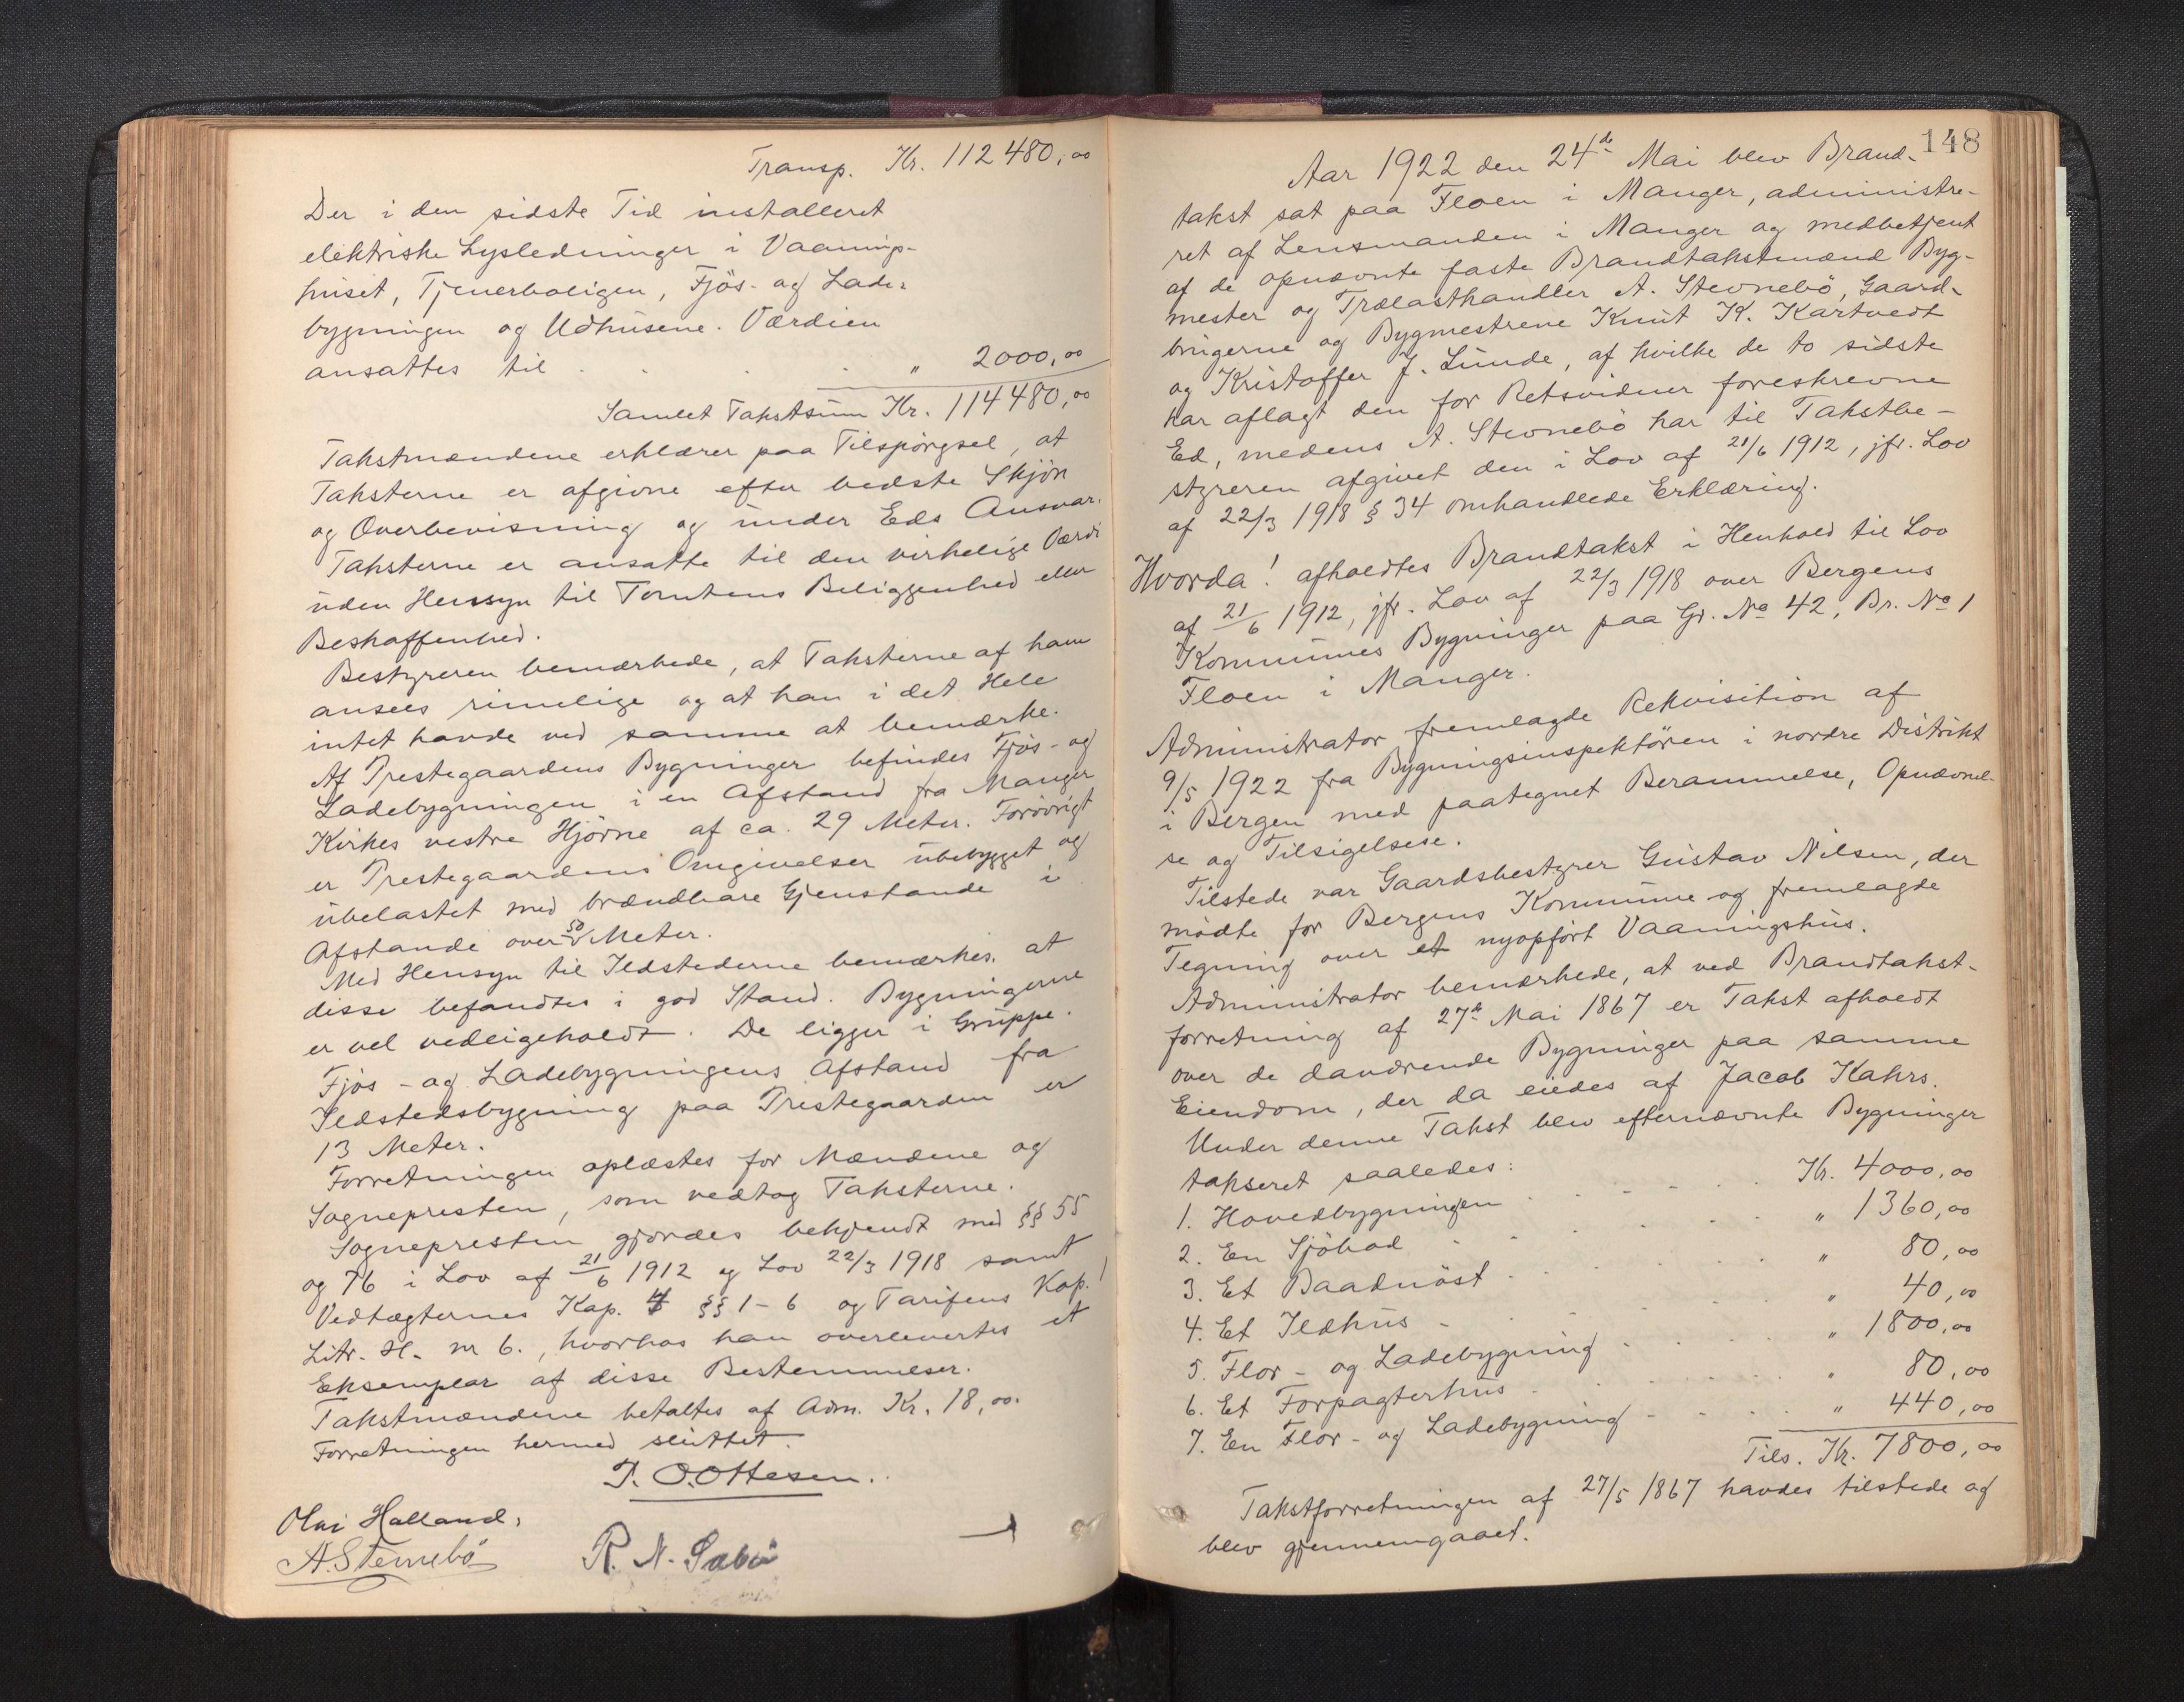 Transp. Kr. 112480,00
Der i den sidste Tid installeret
elektriske Lysledninger i Vaanings-
huset, Tjenerboligen, Fjös- og Lade-
bygningen og Udhusene. Værdien
ansattes til . . . . " 2000,00
Samlet Takstsum Kr. 114480,00
Takstmændene erklærer paa Tilspörgsel, at
Taksterne er afgivne efter bedste Skjön
og Overbevisning og under Eds Ansvar.
Taksterne er ansatte til den virkelige Værdi
uden Hensyn til Tomtens Beliggenhed eller
Beskaffenhed.
Bestyreren bemærkede, at Taksterne af ham
ansees rimelige og at han i det Hele
intet havde ved samme at bemærke.
Af Prestegaardens Bygninger befindes Fjös- og
Ladebygningen i en Afstand fra Manger
Kirkes vestre Hjörne af ca. 29 Meter. Forövrigt
er Prestegaardens Omgivelser ubebygget og
ubelastet med brændbare Gjenstande i
Afstande over 50 Meter.
Med Hensyn til Ildstederne bemærkes, at
disse befandtes i god Stand. Bygningerne
er vel vedligeholdt. De ligger i Gruppe.
Fjös- og Ladebygningens Afstand fra
Ildstedsbygning paa Prestegaarden er
13 Meter.
Forretningen oplæstes for Mændene og
Sognepresten, som vedtog Taksterne.
Sognepresten gjordes bekjendt med §§ 55
og 76 i Lov af 21/6 1912 og Lov 22/3 1918 samt
Vedtægternes Kap. 4 §§ 1-6 og Tarifens Kap. 1
Litr. H. nr 6., hvorhos han overlevertes et
Eksemplar af disse Bestemmelser.
Takstmændene betaltes af Adm. Kr. 18,00.
Forretningen hermed sluttet.
P. O. Ottesen.
Olai Halland,
A. Stevnebö R. N. Sæbö
148
Aar 1922 den 24de Mai blev Brand-
takst sat paa Floen i Manger, administre-
ret af Lensmanden i Manger og medbetjent
af de opnævnte faste Brandtakstmænd Byg-
mester og Trælasthandler A. Stevnebö, Gaard-
brugerne og Bygmestrene Knut K. Kartvedt
og Kristoffer J. Lunde, af hvilke de to sidste
har aflagt den for Retsvidner foreskrevne
Ed, medens A. Stevnebö har til Takstbe-
styreren afgivet den i Lov af 21/6 1912, jfr. Lov
af 22/3 1918 § 34 omhandlede Erklæring.
Hvorda! afholdtes Brandtakst i Henhold til Lov
af 21/6 1912, jfr. Lov af 22/3 1918 over Bergens
Kommunes Bygninger paa Gr. No 42, Br. No 1
Floen i Manger.
Administrator fremlagde Rekvisition af
9/5 1922 fra Bygningsinspektören i nordre Distrikt
i Bergen med paategnet Berammelse, Opnævnel-
se og Tilsigelse.
Tilstede var Gaardsbestyrer Gustav Nilsen, der
mödte for Bergens Kommune og fremlagde
Tegning over et nyopfört Vaaningshus.
Administrator bemærkede, at ved Brandtakst-
forretning af 27de Mai 1867 er Takst afholdt
over de daværende Bygninger paa samme
Eiendom, der da eiedes af Jacob Kahrs.
Under denne Takst blev efternævnte Bygninger
takseret saaledes:
1. Hovedbygningen . . . . Kr. 4000,00
2. En Sjöbod . . . . " 1360,00
3. Et Baadnöst . . . . " 80,00
4. Et Ildhus . . . . " 40,00
5. Flor- og Ladebygning . . . . " 1800,00
6. Et Forpagterhus . . . . " 80,00
7. En Flor- og Ladebygning . . . . " 440,00
Tils. Kr. 7800,00
Takstforretningen af 27/5 1867 havdes tilstede og
blev gjennemgaaet.